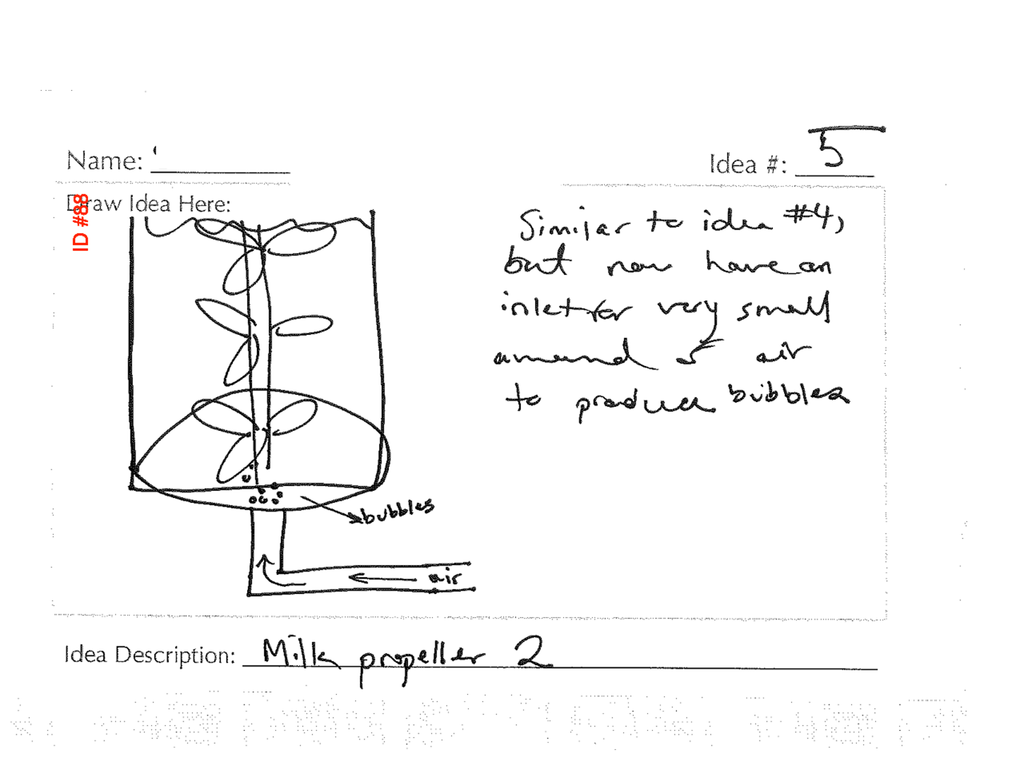 Name:
Idea #: 5
ID #88
Draw Idea Here:
Similar to idea #4,
but now have an
inlet for very small
amound of air
to produce bubbles
bubbles
air
Idea Description: Milk propeller 2